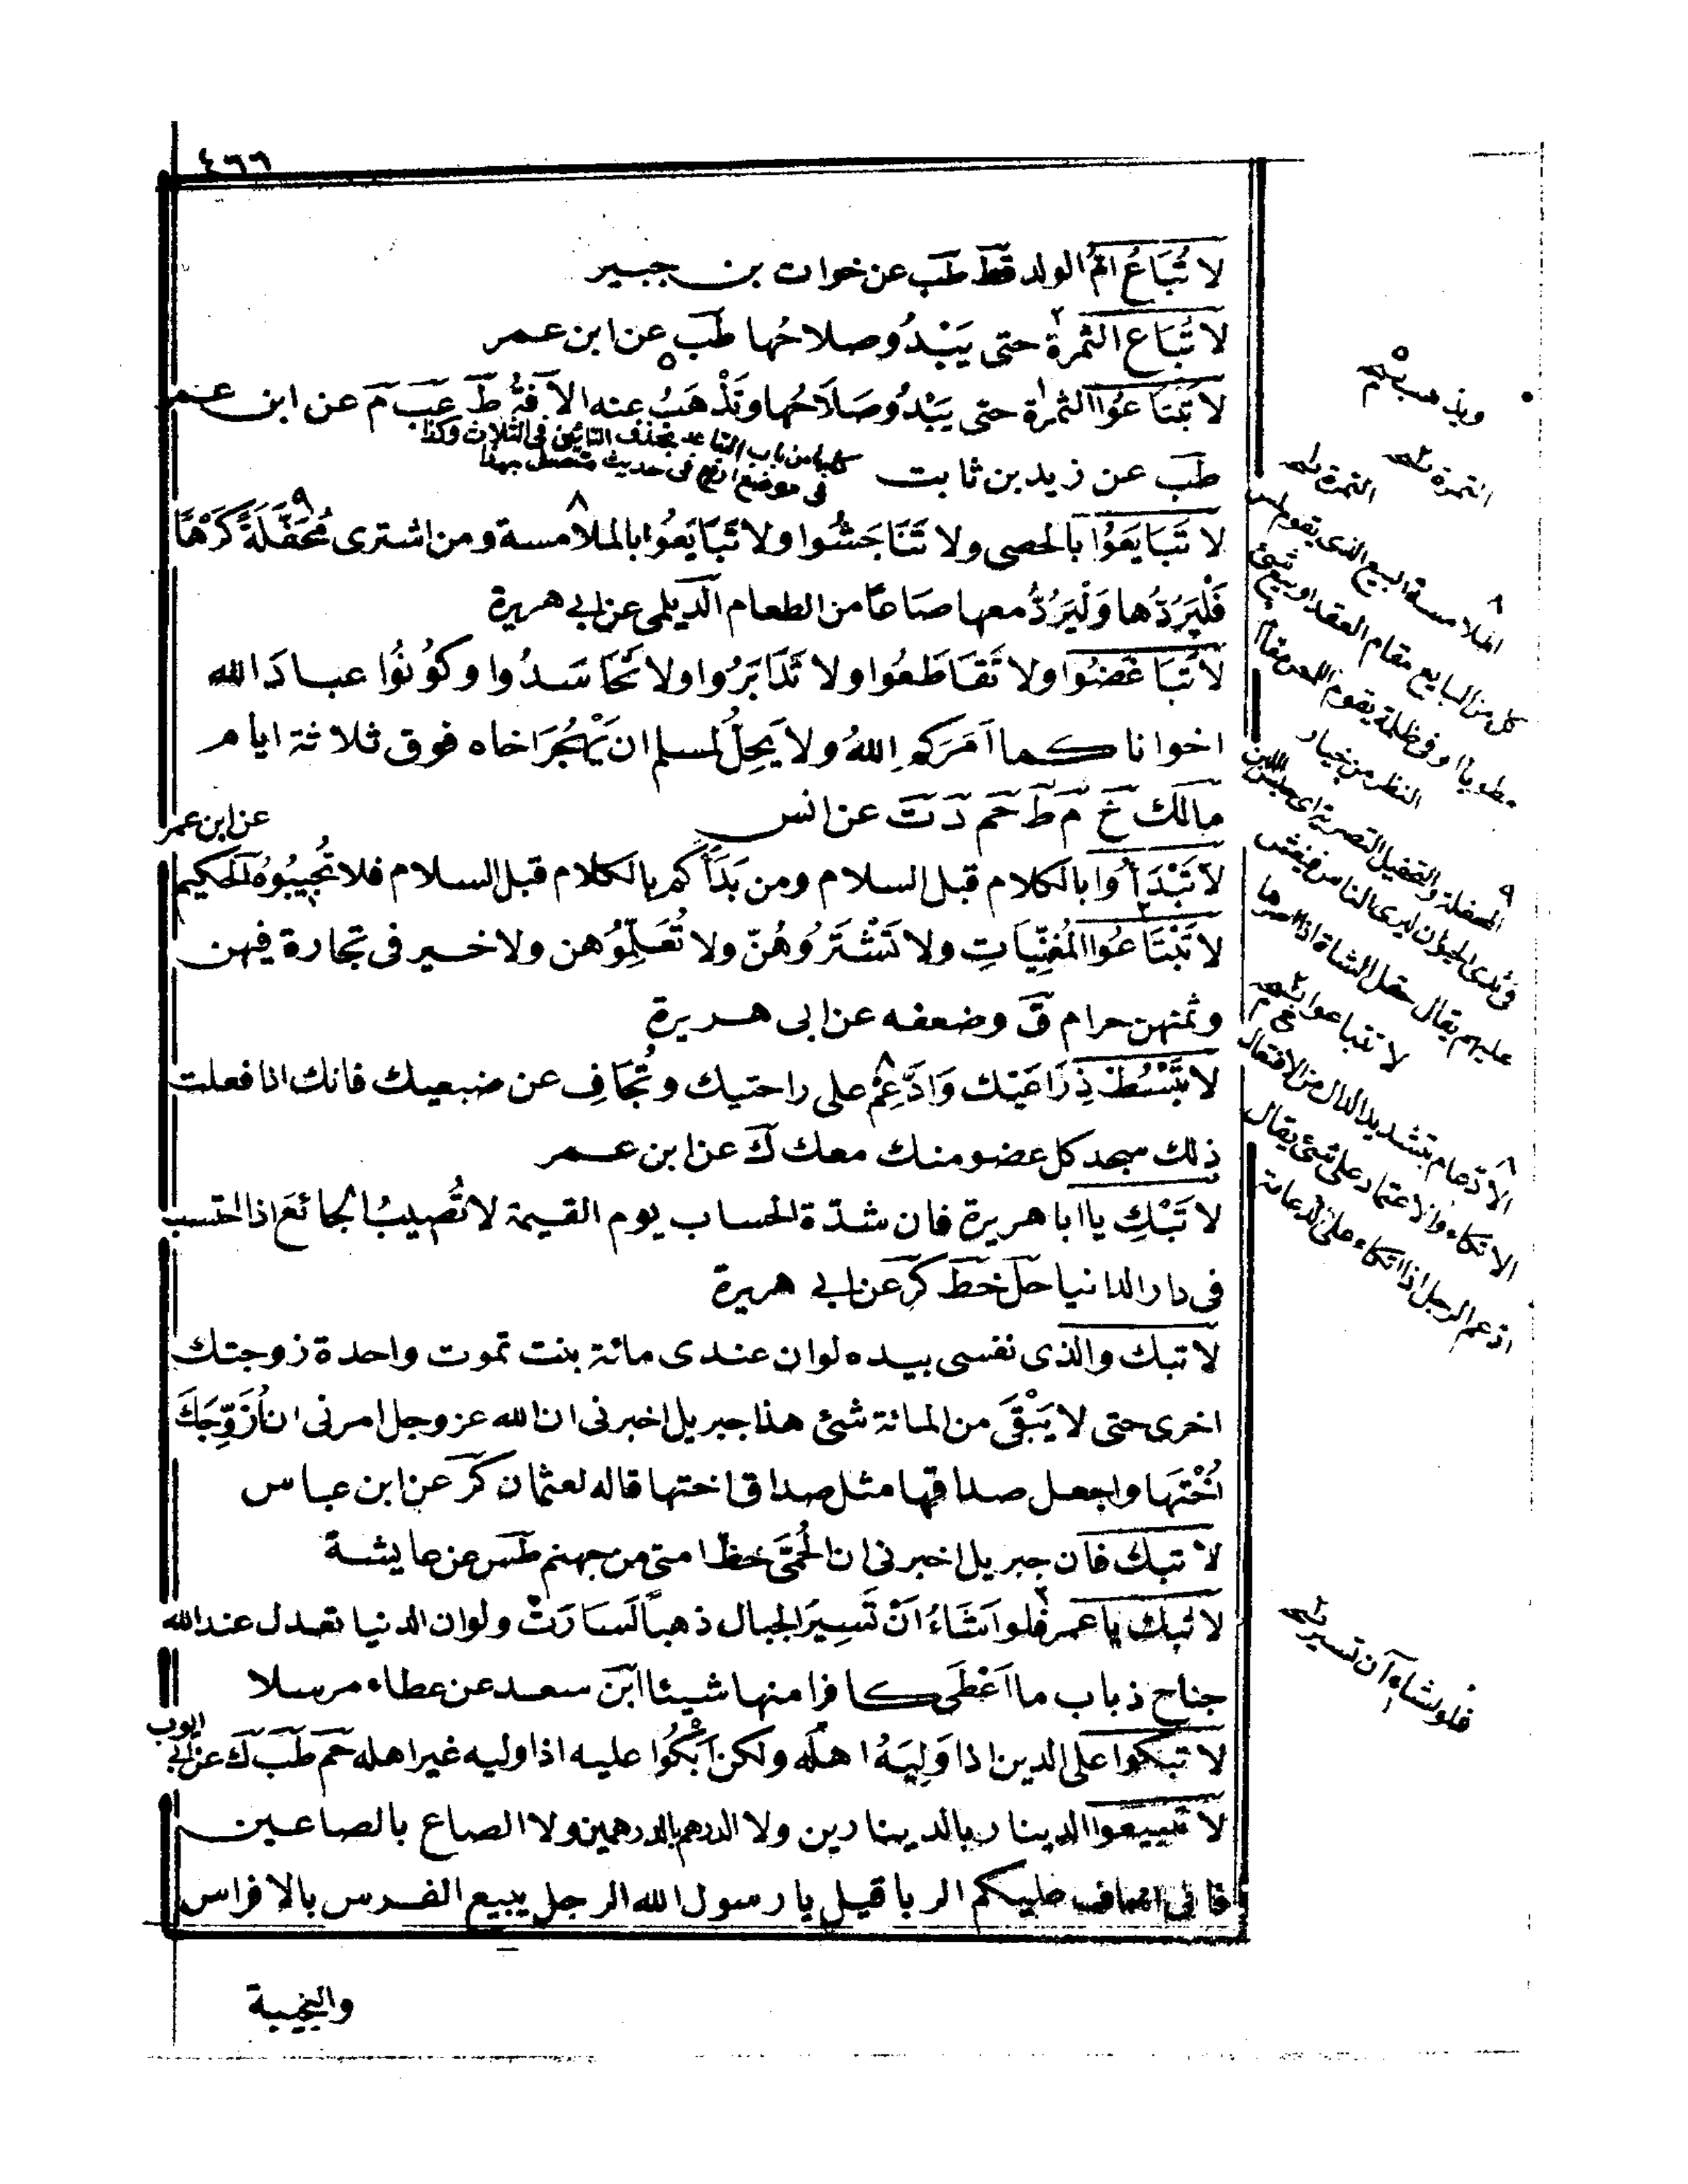 ٤٦٦
لا تُبَاعُ امُّ الولد قط طب عن خوات بن جبير
لا تُبَاع الثمرة حتى يَبْدُو صلاحُها طب عن ابن عمر
لا تَبْتَاعُوا الثمرة حتى يَبْدُو صَلَاحُها وتَذْهَبُ عنه الآفةُ ط عب م عن ابن عمر
طب عن زيد بن ثابت
لا تَبَايَعُوا بالحصى ولا تَنَاجَشُوا ولا تَبَايَعُوا بالملامسة ومن اشترى مُحَفَّلَةً كَرْهًا
فَلْيَرُدَّها وَلْيَرُدُّ معها صَاعًا من الطعام الديلمى عن ابى هريرة
لا تَبَاغَضُوا ولا تَقَاطَعُوا ولا تَدَابَرُوا ولا تَحَاسَدُوا وكُونُوا عبادَ الله
اخوانا كما اَمَرَكم اللهُ ولا يَحِلُّ لمسلم ان يَهْجُرَ اخاه فوق ثلاثة ايام
مالك خ م ط حم د ت عن انس
عن ابن عمر
لا تَبْدَأُوا بالكلام قبل السلام ومن بَدَأَكم بالكلام قبل السلام فلا تُجِيبُوهُ الحكيم
لا تَبْتَاعُوا المُغَنِّيَاتِ ولا تَشْتَرُوهُنّ ولا تُعَلِّمُوُهن ولا خير فى تجارة فيهن
وثمنهن حرام ق وضعفه عن ابى هريرة
لا تَبْسُطْ ذِرَاعَيْك وَادَّعِمْ على راحتيك وتُجَافِ عن ضبعيك فانك اذا فعلت
ذلك سجد كل عضو منك معك ك عن ابن عمر
لا تَبْكِ يا ابا هريرة فان شدّة الحساب يوم القيمة لا تُصِيبُ الجائعَ اذا احتسب
فى دار الدنيا حل خط كر عن ابى هريرة
لا تبك والذى نفسى بيده لو ان عندى مائة بنت تموت واحدة زوجتك
اخرى حتى لا يَبْقَى من المائة شئ هذا جبريل اخبرنى ان الله عز وجل امرنى ان اُزَوِّجَكَ
اُخْتَها واجعل صداقها مثل صداق اختها قاله لعثمان كر عن ابن عباس
لا تبك فان جبريل اخبرنى ان الحُمَّى حظ امتى من جهنم طس عن عايشة
لا تبك يا عمر فلو اَشَاءُ اَنْ تَسِيرَ الجبال ذهبًا لَسَارَتْ ولو ان الدنيا تعدل عند الله
جناح ذباب ما اَعْطَى كافرا منها شيئا ابن سعد عن عطاء مرسلا
لا تبكوا على الدين اذا وَلِيَهُ اهله ولكن ابْكُوا عليه اذا وليه غير اهله حم طب ك عن ابى
ايوب
لا تبيعوا الدينار بالدينارين ولا الدرهم بالدرهمين ولا الصاع بالصاعين
فانى اخاف عليكم الربا قيل يا رسول الله الرجل يبيع الفرس بالافراس
والنجيبة
ويذهب
الثمرة
الثمرة
٨ الملامسة البيع الذى يقوم لمس
كل من البايع مقام العقد او بيع شئ
النظر من خيار
لا تتباعوا
الادعام بتشديد الدال من الافتعال
الاتكاء والاعتماد على شئ يقال
ادعم الرجل اذا اتكاء على الدعامة
فلو شاء ان تسير